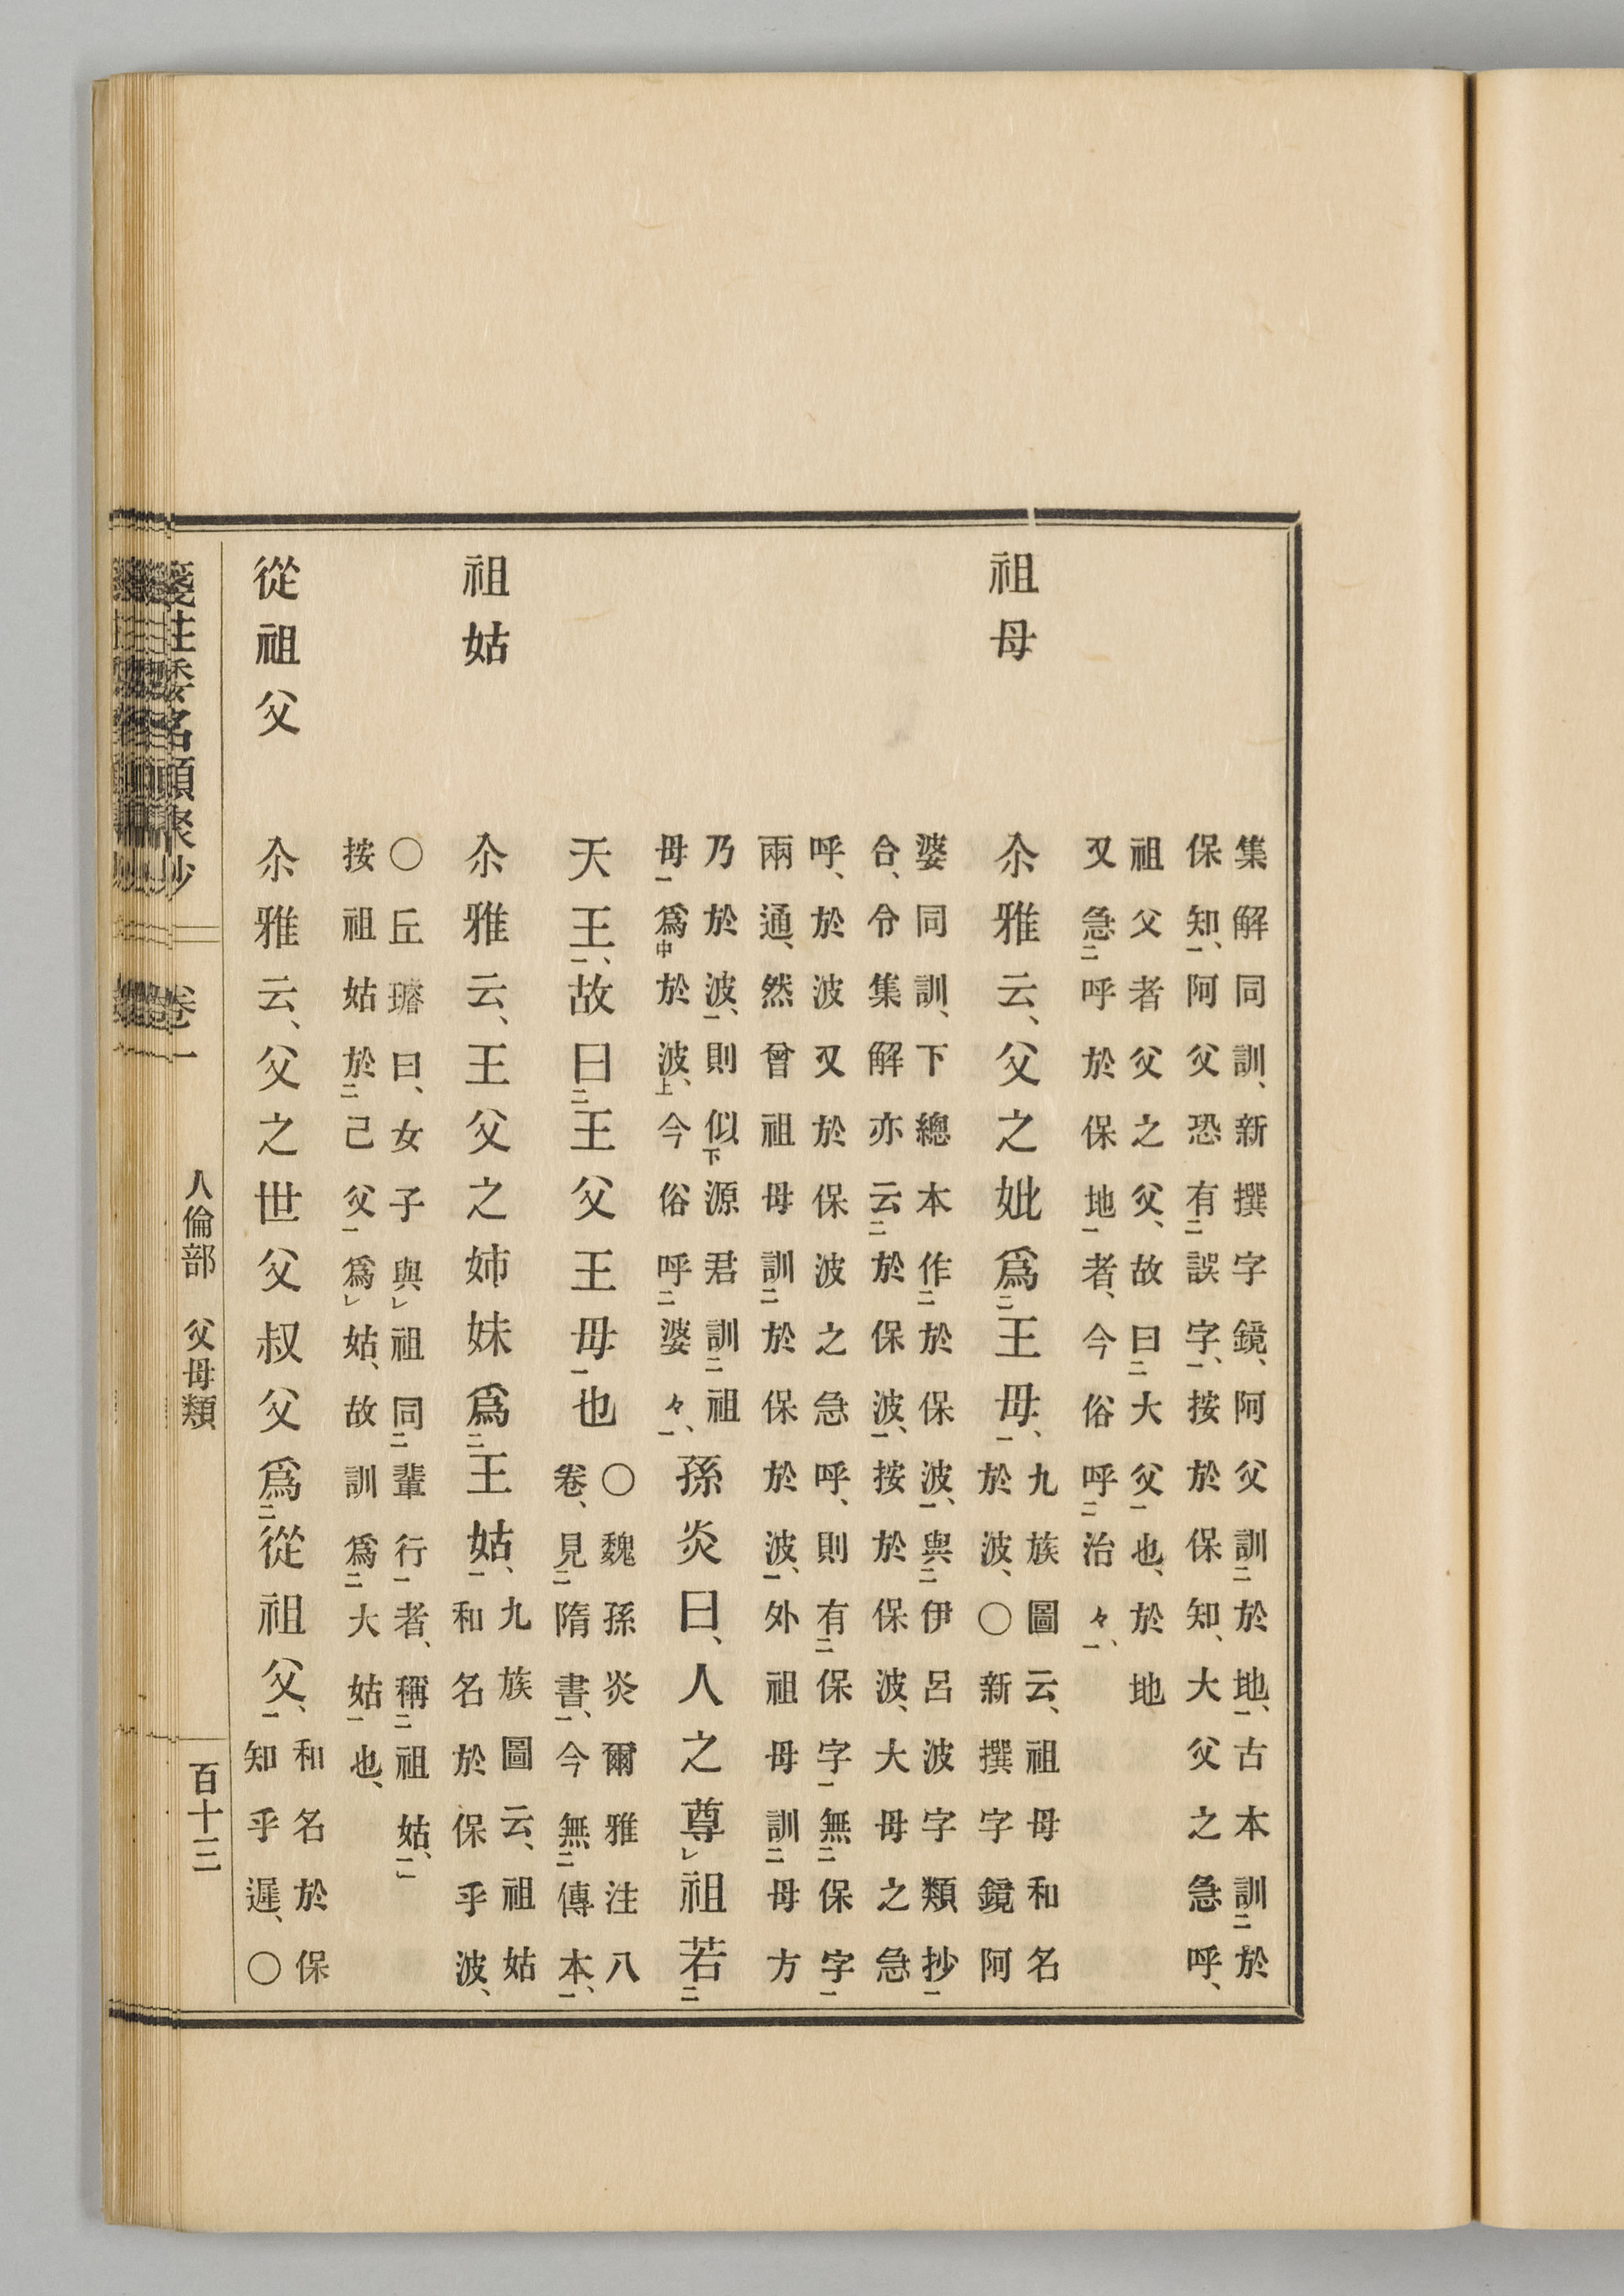 集解同訓、新撰字鏡、阿父訓㆓於地㆒、古本訓㆓於
保知㆒、阿父恐有㆓誤字㆒、按於保知、大父之急呼、
祖父者父之父、故曰㆓大父㆒也、於地
又急㆓呼於保地㆒者、今俗呼㆓治々㆒、
祖母
尒雅云、父之妣爲㆓王母㆒、
九族圖云、祖母和名
於波、〇新撰字鏡阿
婆同訓、下總本作㆓於保波㆒、與㆓伊呂波字類抄㆒
合、令集解亦云㆓於保波㆒、按於保波、大母之急
呼、於波又於保波之急呼、則有㆓保字㆒無㆓保字㆒
兩通、然曾祖母訓㆓於保於波㆒、外祖母訓㆓母方
乃於波㆒、則似㆘源君訓㆓祖
母㆒爲㆗於波㆖、今俗呼㆓婆々㆒、
孫炎曰、人之尊㆑祖若㆓
天王㆒、故曰㆓王父王母㆒也
〇魏孫炎爾雅注八
卷、見㆓隋書㆒、今無㆓傳本㆒、
祖姑
尒雅云、王父之姉妹爲㆓王姑㆒、
九族圖云、祖姑
和名於保乎波、
〇丘璿曰、女子與㆑祖同㆓輩行㆒者、稱㆓祖姑㆒、
按祖姑於㆓己父㆒爲㆑姑、故訓爲㆓大姑㆒也、
從祖父
尒雅云、父之世父叔父爲㆓從祖父㆒、
和名於保
知乎遲、〇
箋注倭名類聚抄 卷一 人倫部 父母類 百十三